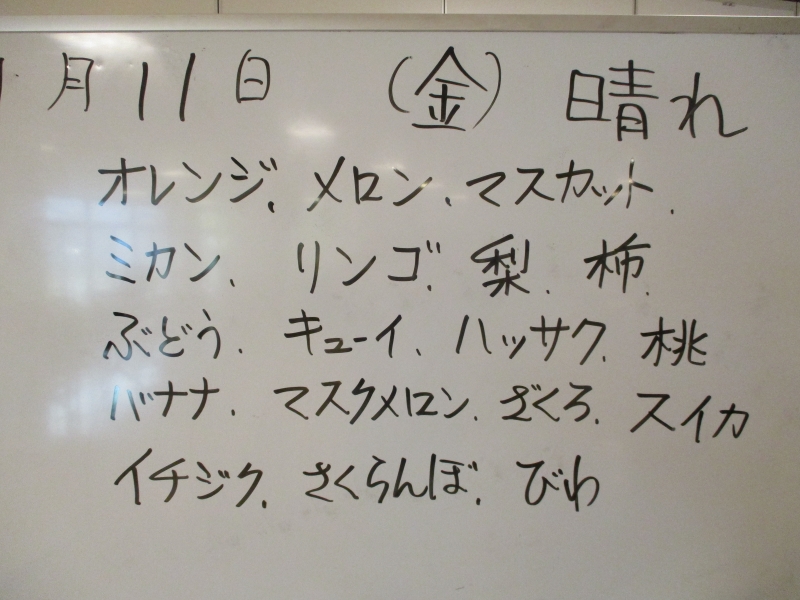 月11日 (金) 晴れ
オレンジ、メロン、マスカット、
ミカン、リンゴ、梨、柿、
ぶどう、キューイ、ハッサク、桃
バナナ、マスクメロン、ざくろ、スイカ
イチジク、さくらんぼ、びわ